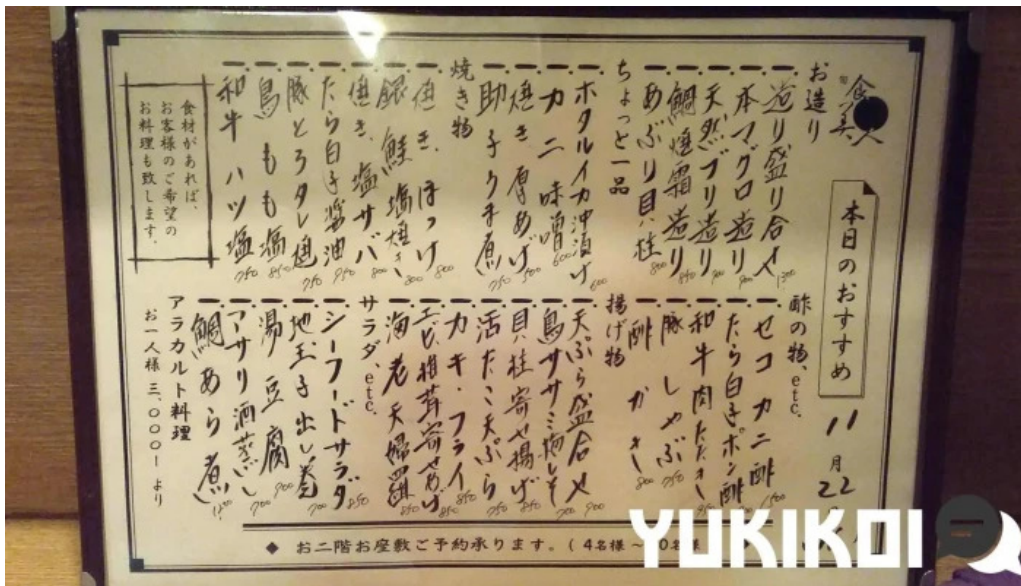 旬
食美人
本日のおすすめ
11月22
お造り
造り盛り合せ 1300
本マグロ造り 900
天然ブリ造り 900
鯛焼霜造り 850
あぶり貝柱 800
ちょっと一品
ホタルイカ沖漬け 600
カニ味噌 600
焼き厚あげ 500
助子うま煮 750
焼き物
焼き、ほっけ 800
銀鮭塩焼き 800
焼き、塩サバ 800
たら白子醤油 950
豚とろタレ焼 750
鳥もも塩 850
和牛ハツ塩 750
食材があれば、
お客様のご希望の
お料理も致します。
酢の物、etc.
セコカニ酢
たら白子ポン酢
和牛肉たたき
豚しゃぶ 750
酢がき 800
揚げ物
天ぷら盛合せ 900
鳥ササミ梅しそ 700
貝柱寄せ揚げ 850
活たこ天ぷら 850
カキ・フライ 850
エビ椎茸寄せあげ 850
海老天婦羅 850
サラダ、etc.
シーフードサラダ 850
地玉子出し巻 700
湯豆腐 900
アサリ酒蒸し 700
鯛あら煮
アラカルト料理
お一人様 三、〇〇〇ー より
◆ お二階お座敷ご予約承ります。(4名様～
YUKIKOI